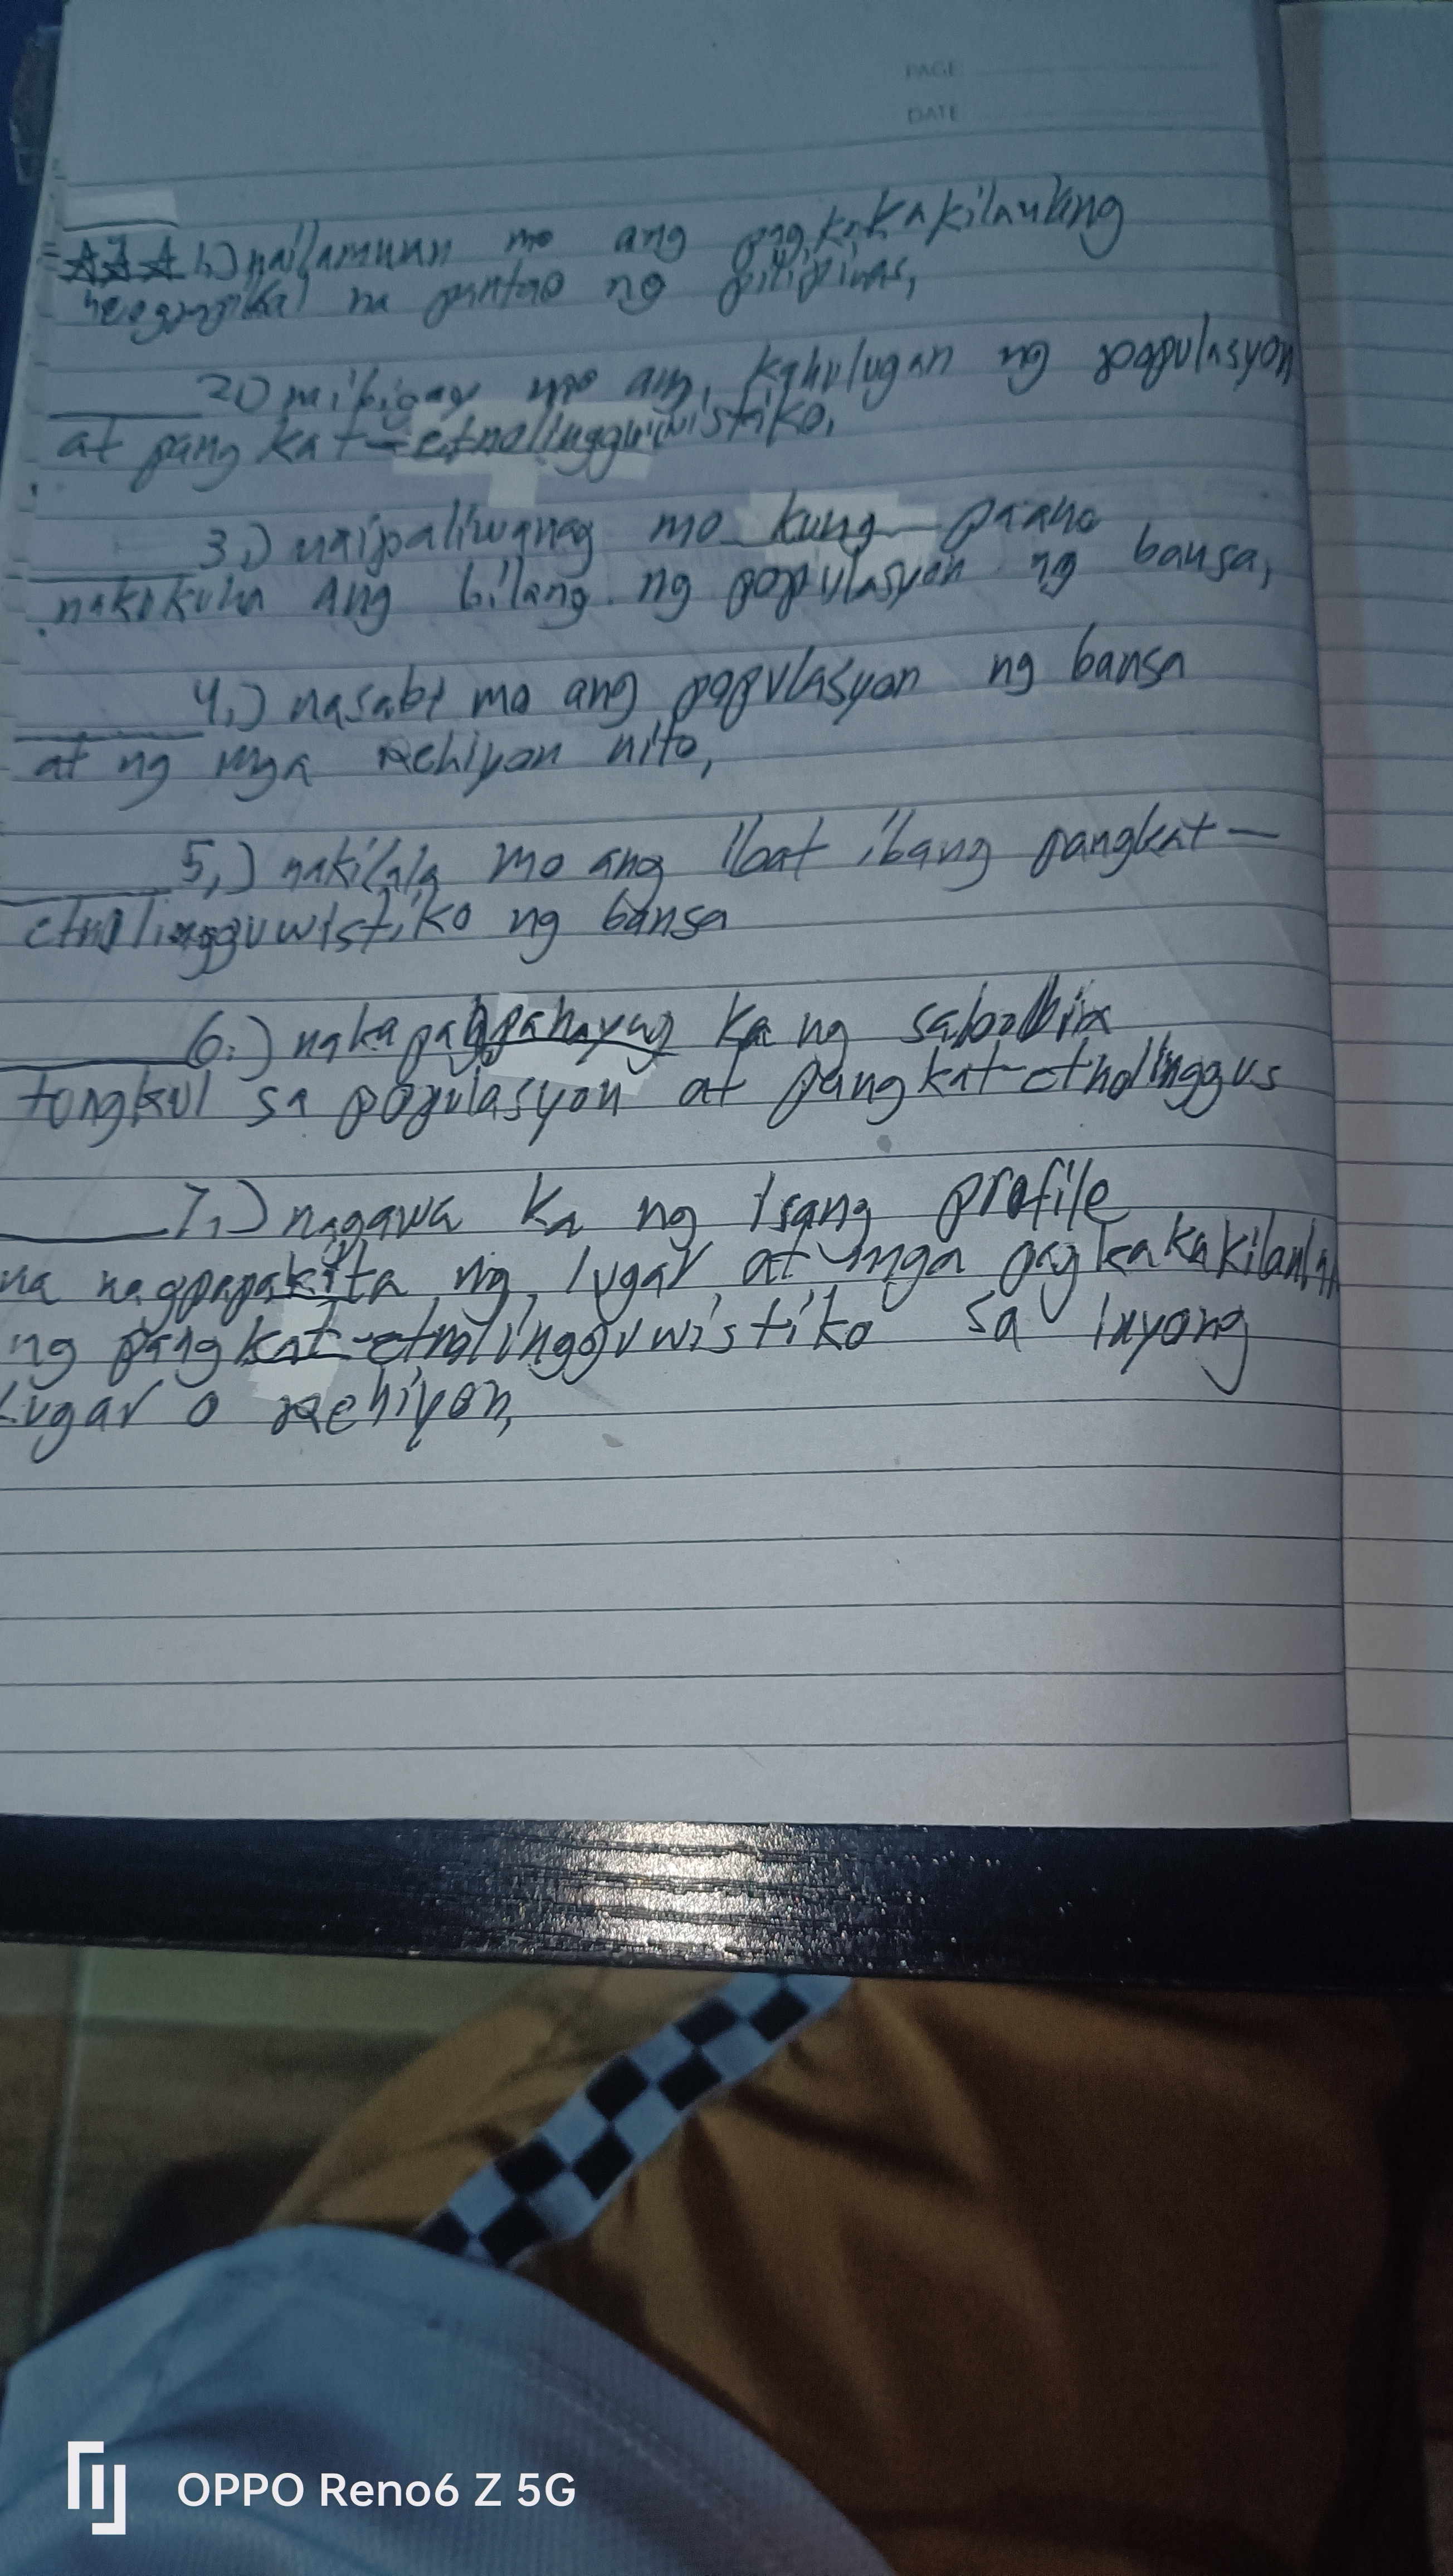 PAGE
DATE
1.) nailamuan mo ang pagkakakilanling
heograpikal na pantao ng pilipinas,
2.) mibigay mo ang kahulugan ng populasyon
at pang kat-etnolingguwistiko,
3.) naipaliwanag mo kung paano
nakukuha ang bilang ng populasyon ng bansa,
4.) nasabi mo ang populasyon ng bansa
at ng mga rehiyon nito,
5,) nakilala mo ang ibat ibang pangkat-
etnolingguwistiko ng bansa
6.) nakapagpahayag ka ng
tongkul sa populasyon at pangkat-etnolinggus
7.) nagawa ka ng isang profile
na nagpapakita ng lugar at mga pagkakakilanlan
ng pangkat-etnolingguwistiko sa inyong
Lugar o rehiyon,
OPPO Reno6 Z 5G